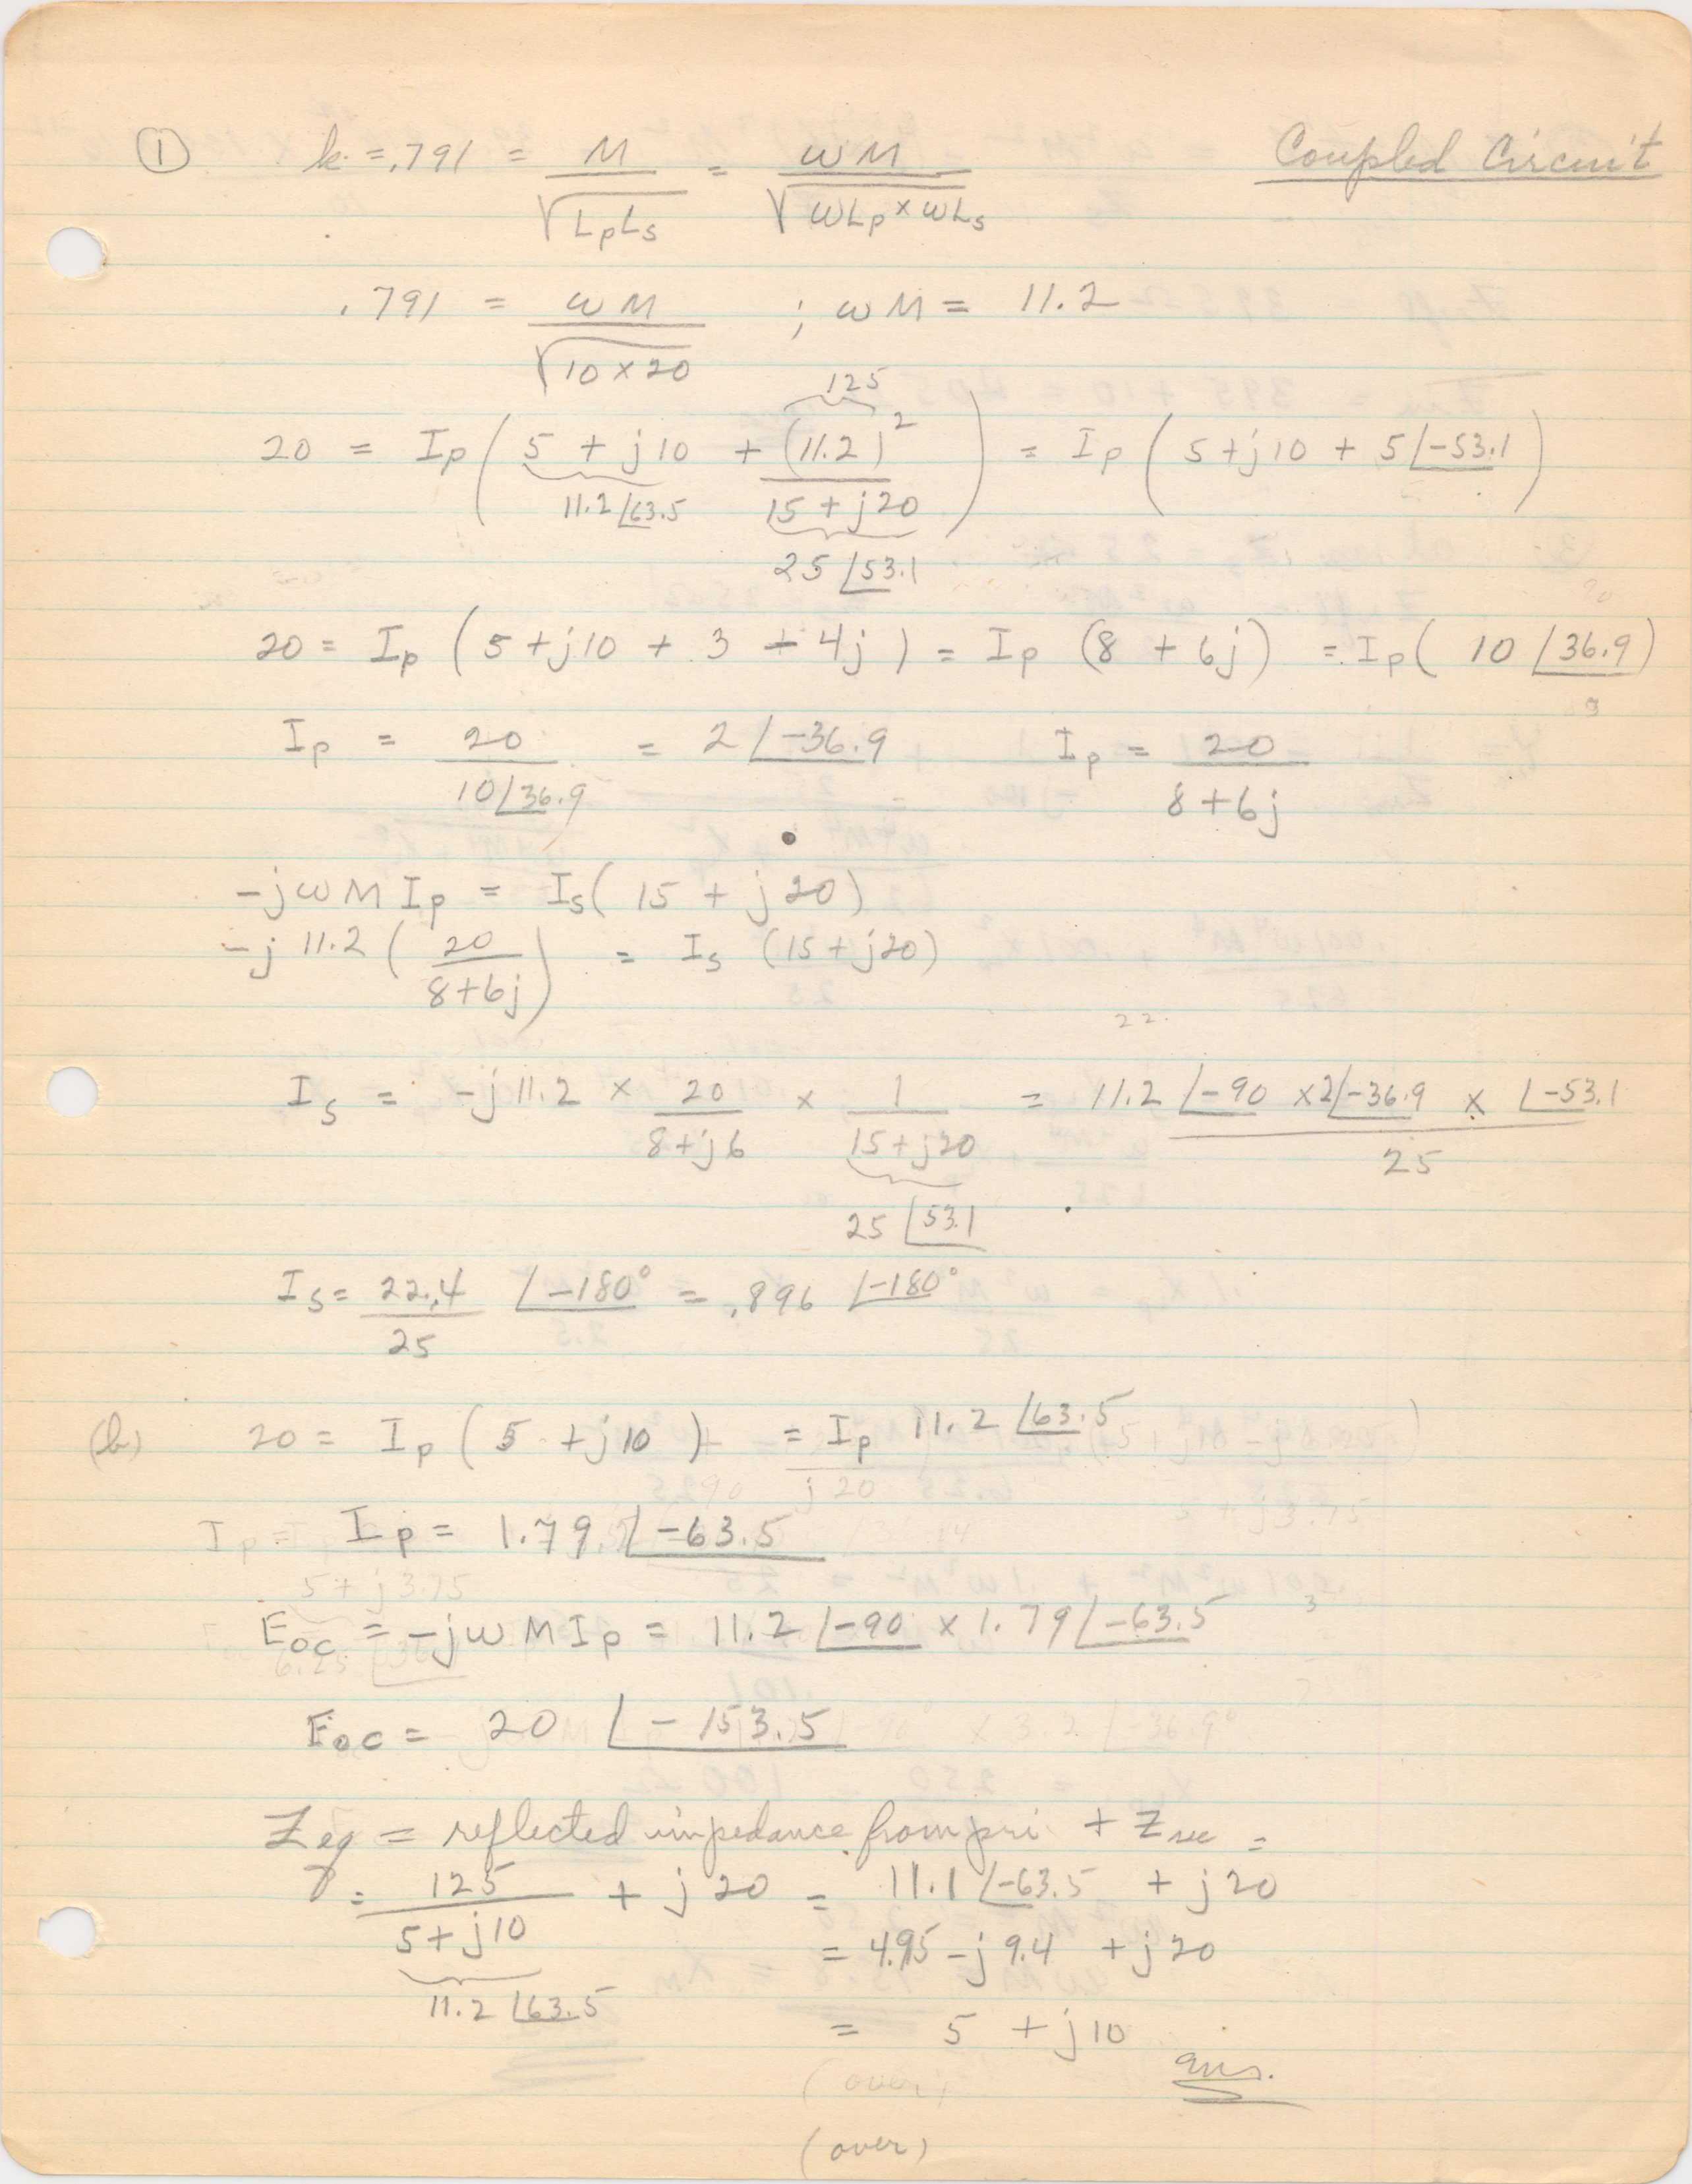 ① k = .791 = M / √(LpLs) = ωM / √(ωLp × ωLs)
Coupled Circuit
.791 = ωM / √(10 × 20) ; ωM = 11.2
125
20 = Ip ( 5 + j10 + (11.2)² / (15 + j20) ) = Ip ( 5 + j10 + 5 ∠-53.1 )
11.2 ∠63.5
25 ∠53.1
20 = Ip ( 5 + j10 + 3 - 4j ) = Ip (8 + 6j) = Ip ( 10 ∠36.9 )
Ip = 20 / (10 ∠36.9) = 2 ∠-36.9 Ip = 20 / (8 + 6j)
-jωM Ip = Is ( 15 + j20 )
-j 11.2 ( 20 / (8 + 6j) ) = Is (15 + j20)
22.
Is = -j11.2 × 20 / (8 + j6) × 1 / (15 + j20) = 11.2 ∠-90 × 2 ∠-36.9 × ∠-53.1 / 25
25 ∠53.1
Is = 22.4 / 25 ∠-180° = .896 ∠-180°
(b) 20 = Ip ( 5 + j10 ) = Ip 11.2 ∠63.5
Ip = 1.79 ∠-63.5
Eoc = -jωM Ip = 11.2 ∠-90 × 1.79 ∠-63.5
Eoc = 20 ∠-153.5
Zeq = reflected impedance from pri + Zsec =
= 125 / (5 + j10) + j20 = 11.1 ∠-63.5 + j20
= 4.95 - j9.4 + j20
11.2 ∠63.5
= 5 + j10
ans.
(over)
(over)